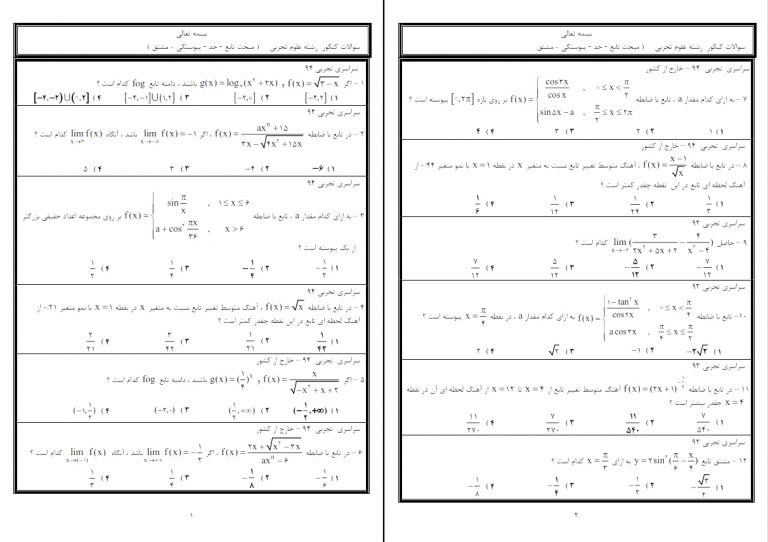 بسمه تعالی
سوالات کنکور رشته علوم تجربی ( مبحث تابع - حد - پیوستگی - مشتق )
سراسری تجربی ۹۴
۱ - اگر f(x) = √(۳ - x) و g(x) = log₂(x² + ۲x) باشند ، دامنه تابع fog کدام است ؟
۱) [-۴,۲] ۲) [-۲,۰) ۳) [-۴,-۱]∪(۱,۲] ۴) [-۴,-۲)∪(۰,۲]
سراسری تجربی ۹۴
۲ - در تابع با ضابطه f(x) = (axⁿ + ۱۵)/(۳x - √(۴x² + ۱۵x)) ، اگر lim f(x) = -۱ x→-∞ باشد ، آنگاه lim f(x) x→۳ کدام است ؟
۱) -۶ ۲) -۴ ۳) ۳ ۴) ۵
سراسری تجربی ۹۴
۳ - به ازای کدام مقدار a ، تابع با ضابطه f(x) = { sin π/x , ۱ ≤ x ≤ ۶
a + cos² πx/۳۶ , x > ۶ بر روی مجموعه اعداد حقیقی بزرگتر
از یک پیوسته است ؟
۱) -۱/۲ ۲) -۱/۴ ۳) ۱/۴ ۴) ۱/۲
سراسری تجربی ۹۴
۴ - در تابع با ضابطه f(x) = √x ، آهنگ متوسط تغییر تابع نسبت به متغیر x در نقطه x = ۱ با نمو متغیر ۰.۲۱ از
آهنگ لحظه ای تابع در این نقطه چقدر کمتر است ؟
۱) ۱/۴۲ ۲) ۱/۲۱ ۳) ۳/۴۲ ۴) ۲/۲۱
سراسری تجربی ۹۴ - خارج از کشور
۵ - اگر f(x) = x/√(-x² + x + ۲) و g(x) = (۱/۴)ˣ باشند ، دامنه تابع fog کدام است ؟
۱) (-۱/۲,+∞) ۲) (۱/۲,+∞) ۳) (-۲,۰) ۴) (-۱,۱/۲)
سراسری تجربی ۹۴ - خارج از کشور
۶ - در تابع با ضابطه f(x) = (۲x + √(x² - ۳x))/(axⁿ - ۶) ، اگر lim f(x) = -۱/۲ x→+∞ باشد ، آنگاه lim f(x) x→(-۱) کدام است ؟
۱) -۱/۴ ۲) -۱/۸ ۳) ۱/۴ ۴) ۱/۳
۱
بسمه تعالی
سوالات کنکور رشته علوم تجربی ( مبحث تابع - حد - پیوستگی - مشتق )
سراسری تجربی ۹۴ - خارج از کشور
۷ - به ازای کدام مقدار a ، تابع با ضابطه f(x) = { cos۳x/cosx , ۰ ≤ x < π/۲
sin۵x - a , π/۲ ≤ x ≤ ۲π بر روی بازه [۰,۲π] پیوسته است ؟
۱) ۱ ۲) ۲ ۳) ۳ ۴) ۴
سراسری تجربی ۹۴ - خارج از کشور
۸ - در تابع با ضابطه f(x) = (x - ۱)/√x ، آهنگ متوسط تغییر تابع نسبت به متغیر x در نقطه x = ۱ با نمو متغیر ۰.۴۴ از
آهنگ لحظه ای تابع در این نقطه چقدر کمتر است ؟
۱) ۱/۳ ۲) ۱/۲۴ ۳) ۱/۱۲ ۴) ۱/۶
سراسری تجربی ۹۳
۹ - حاصل lim x→-۲ (۳/(۲x² + ۵x + ۲) - ۴/(x² - ۴)) کدام است ؟
۱) -۷/۱۲ ۲) -۵/۱۲ ۳) ۵/۱۲ ۴) ۷/۱۲
سراسری تجربی ۹۳
۱۰- تابع با ضابطه f(x) = { (۱ - tan²x)/cos۲x , ۰ ≤ x < π/۴
a cos۳x , π/۴ ≤ x ≤ π/۲ به ازای کدام مقدار a ، در نقطه x = π/۴ پیوسته است ؟
۱) -۲√۲ ۲) -۱ ۳) √۲ ۴) ۲
سراسری تجربی ۹۳
۱۱ - در تابع با ضابطه f(x) = (۲x + ۱)^(-۱/۲) آهنگ متوسط تغییر تابع از x = ۴ تا x = ۱۲ از آهنگ لحظه ای آن در نقطه
x = ۴ چقدر بیشتر است ؟
۱) ۷/۵۴۰ ۲) ۱۱/۵۴۰ ۳) ۷/۲۷۰ ۴) ۱۱/۲۷۰
سراسری تجربی ۹۳
۱۲ - مشتق تابع y = ۲sin²(π/۶ - x/۴) به ازای x = π/۳ کدام است ؟
۱) -√۳/۲ ۲) -۱/۲ ۳) -۱/۴ ۴) -۱/۸
۲